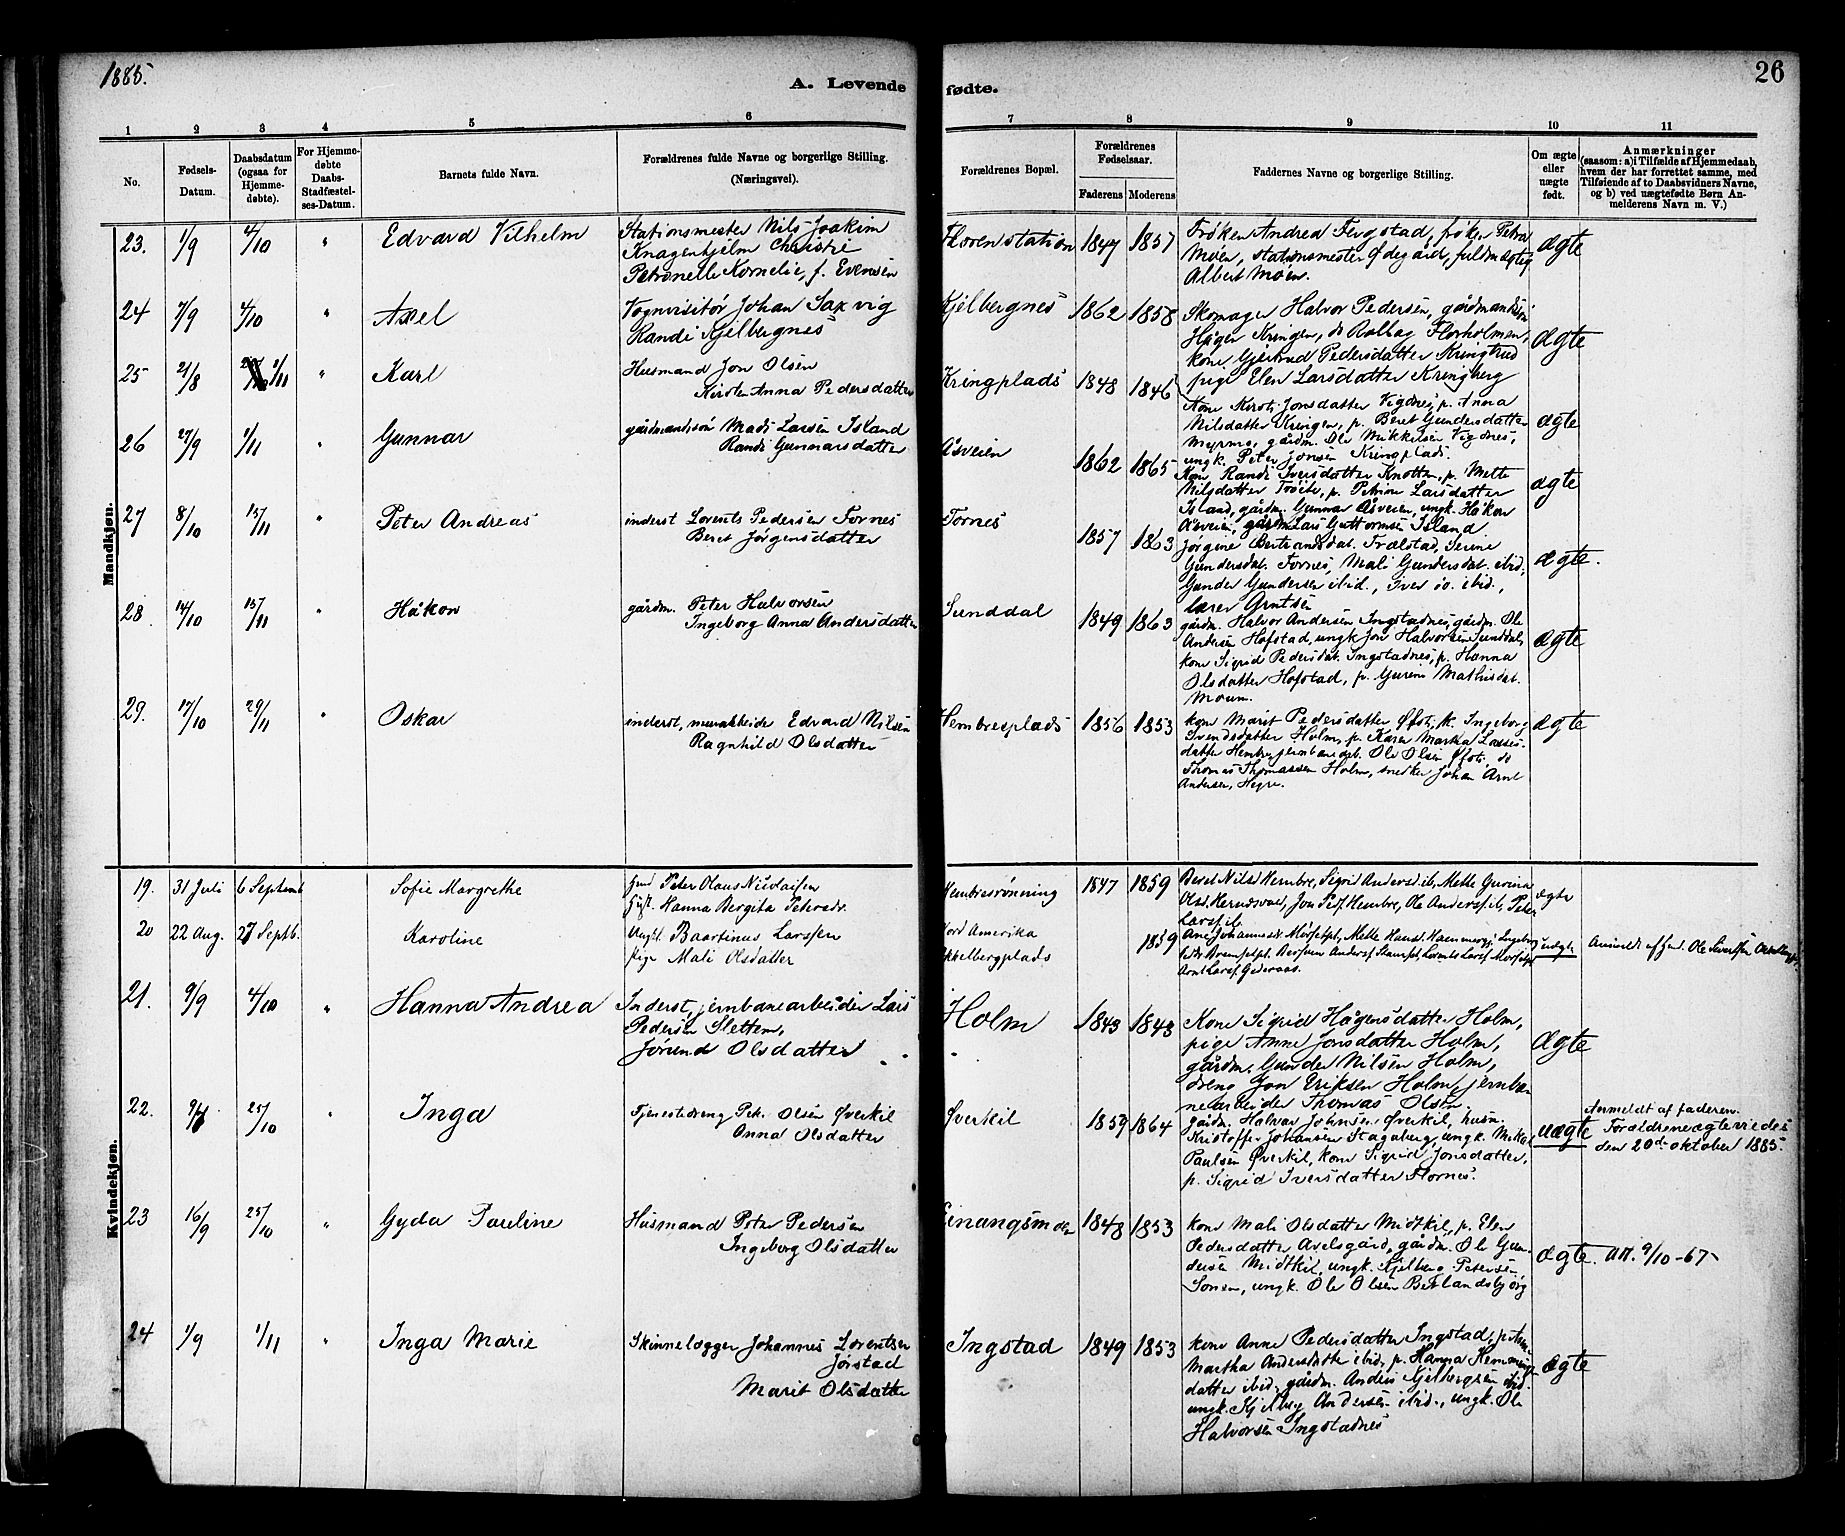 1885.
A. Levende fødte.
26
1 2 3 4 5 6 7 8 9 10 11
No.
Fødsels-Datum.
Daabsdatum (ogsaa for Hjemme-døbte).
For Hjemme-døbte Daabs-Stadfæstel-ses-Datum.
Barnets fulde Navn.
Forældrenes fulde Navne og borgerlige Stilling. (Næringsvei).
Forældrenes Bopæl.
Forældrenes Fødselsaar.
Faderens Moderens
Faddernes Navne og borgerlige Stilling.
Om ægte eller uægte født.
Anmærkninger (saasom: a) i Tilfælde af Hjemmedaab, hvem der har forrettet samme, med Tilføiende af to Daabsvidners Navne, og b) ved uægtefødte Børn An-melderens Navn m. V.)
Mandkjøn.
23. 1/9 4/10 " Edvard Vilhelm
Stationsmester Nils Joakim
Knagenhjelm Christie
Petronelle Kornelie, f. Evensen
Floren station 1847 1857
Frøken Andrea Fergstad, frøken Petra
Moen, stationsmester Ødegård, fuldmægtig
Albert Moen.
ægte
24 7/9 4/10 " Axel
Vognvisitør Johan Saxvig
Randi Kjelbergnes
Kjelbergnes 1862 1858
Skomager Halvor Pedersen, gårdmandssøn
Håger Kringen, do Rolbag Florholmen,
kone Gjertrud Pedersdatter Kringtrud
pige Elen Larsdatter Kringberg
ægte
25 21/8 1/11 " Karl
Husmand Jon Olsen
Kirsten Anna Pedersdatter
Kringplads 1848 1846
Kone Kirsti Jonsdatter Vigdnes, p. Anna
Nilsdatter Kringen, p. Beret Gundersdatter
Myrmo, gårdm. Ole Mikkelsen Vigdnes,
ungk. Peter Jonsen Kringplads.
ægte
26 27/9 1/11 " Gunnar
gårdmandssøn Mads Larsen Island
Randi Gunnarsdatter
Åsveien 1862 1865
Kone Randi Iversdatter Knotten, p. Mette
Nilsdatter Trøite, p. Petrine Larsdatter
Island, gårdm. Gunnar Åsveien, ungk. Håkon
Åsveien, gårdm Lars Guttormsen Island
ægte
27 8/10 15/11 " Peter Andreas
inderst Lorents Pedersen Fornes
Beret Jørgensdatter
Fornes 1857 1863
Jørgine Bertrandsdat. Frælstad, Serine
Gundersdat. Fornes, Mali Gundersdat. ibid.,
Gunder Gundersen ibid., Iver do. ibid.,
lærer Arntsen
ægte.
28. 14/10 15/11 " Håkon
gårdm. Peter Halvorsen
Ingeborg Anna Andersdatter
Sunddal 1849 1863
gårdm. Halvor Andersen Ingstadnes, gårdm. Ole
Andersen Hofstad, ungk Jon Halvorsen Sunddal,
kone Sigrid Pedersdat. Ingstadnes, p. Hanna
Olsdatter Hofstad, p. Guren Mathisdat.
Moum.
ægte
29. 17/10 29/11 " Oskar
inderst, murarbeide Edvard Nilsen
Ragnhild Olsdatter
Hembresplads 1856 1853
kone Marit Pedersdatter Øfsti, k. Ingeborg
Svendsdatter Holm, p. Karen Marka Lasses-
datter Hembre, jernbanearb. Ole Olsen Øfsti, do
Thomas Thomassen Holm, snedker Johan Arnt
Andersen, Hegre.
ægte
Kvindekjøn.
19. 31 Juli 6 Septemb Sofie Margrethe
Peter Olaus Nicolaisen
Hust. Hanna Bergita Petersdr.
Hembresrønning 1847 1859
Beret Nilsd Hembre, Sigrid Andersd ib, Mette Gurina
Olsd. Hernesvold, Jon Peders Hembre, Ole Anders ib, Peter
Lars ib
ægte
20 22 Aug. 27 Septb. Karoline
Ungk. Baartinus Larssen
Pige Mali Olsdatter
Nord Amerika
Kjelbergplads 1859
Ane Johannesd. Morsetpl, Mette Hansd. Hammerpl, Ingeborg
Arnt Larss. Gederaas.
uægte
Anmeldt af Ole Sivertsen
21. 9/9 4/10 " Hanna Andrea
Inderst, jernbanearbeider Lars
Pedersen Sletten,
Jørund Olsdatter
Holm 1843 1843
Kone Sigrid Hågensdatter Holm,
pige Anne Jonsdatter Holm,
gårdm. Gunder Nilsen Holm,
dreng Jon Eriksen Holm, jernba-
nearbeider Thomas Olsen.
ægte
22. 25/10 " Inga
Tjenestedreng Petr. Olsen Øverkil
Anna Olsdatter
Øverkil 1859 1864
gårdm. Halvar Johnsen Øverkil, husm.
Kristoffer Johansen Stagaberg, ungk. Mikal
Paulsen Øverkil, kone Sigrid Jonsdatter,
p. Sigrid Iversdatter Flornes.
uægte
Anmeldt af faderen.
Forældrene ægteviedes
den 20de oktober 1885.
23 16/9 25/10 " Gyda Pauline
Husmand Peter Pedersen
Ingeborg Olsdatter
Einangsmoen 1848 1853
kone Mali Olsdatter Midtkil, p. Elen
Pedersdatter Avelsgård, gårdm. Ole Gun-
dersen Midtkil, ungk. Kjelberg Petersen
Sonen, ungk. Ole Olsen Bitlandsbjørg
ægte. att. 9/10 -67
24 1/9 1/11 " Inga Marie
Skinnelægger Johannes Lorentsen
Jørstad
Marit Olsdatter
Ingstad 1849 1853
kone Anne Pedersdatter Ingstad, p. Ane
Martha Andersdatter ibid, p. Hanna Hemmings-
datter ibid, gårdm. Anders Kjelbergsen ibid.
ungk. Kjelberg Andersen ibid., ungk. Ole
Halvorsen Ingstadnes
ægte